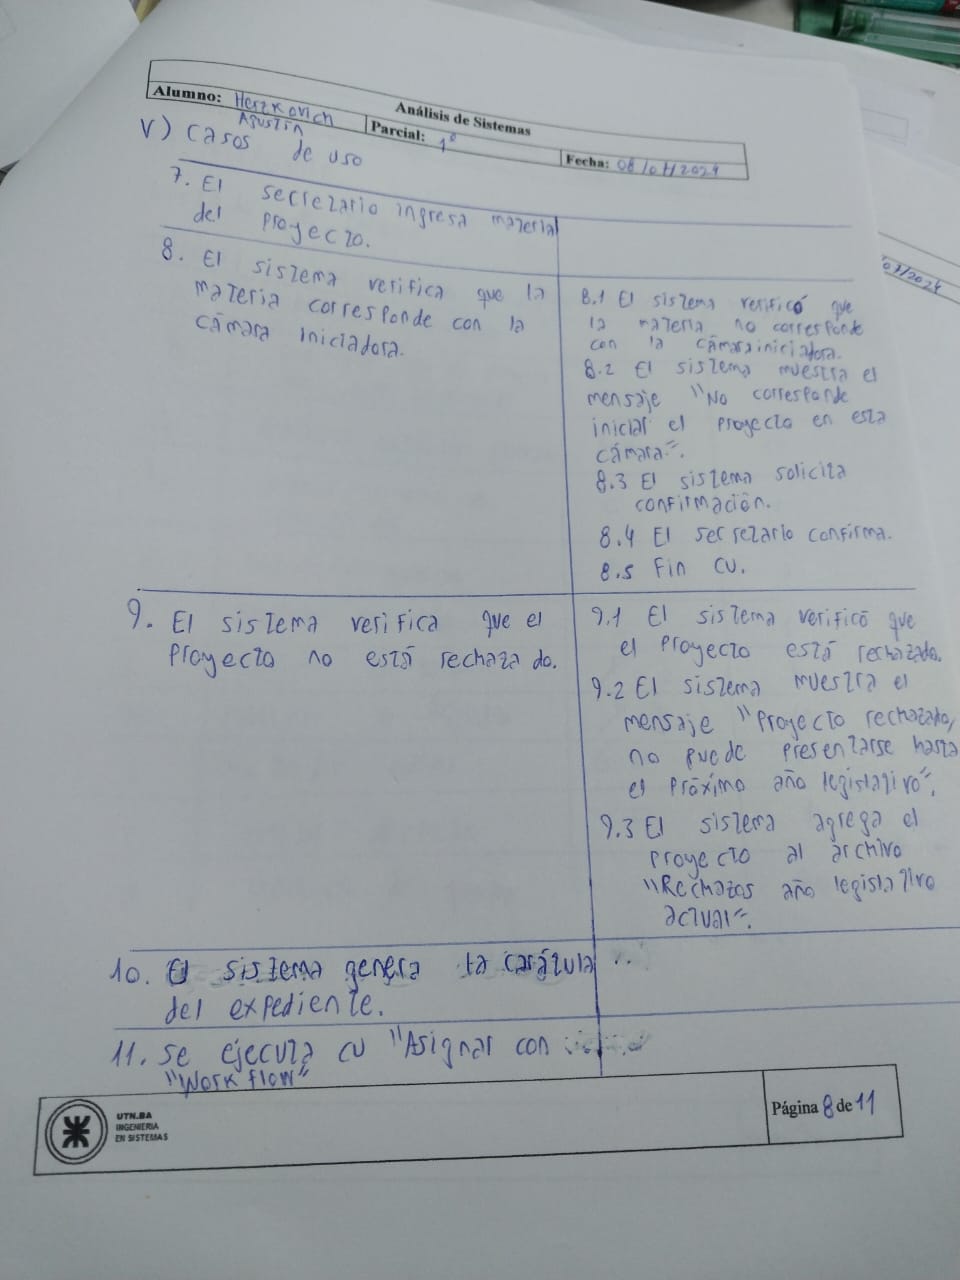 Análisis de Sistemas
Alumno: Herzkovich
Agustín
Parcial: 1º
Fecha: 08/07/2024
V) Casos de uso
07/2024
7. El secretario ingresa material
del proyecto.
8. El sistema verifica que la
materia corresponde con la
cámara iniciadora.
8.1 El sistema verificó que
la materia no corresponde
con la cámara iniciadora.
8.2 El sistema muestra el
mensaje "No corresponde
iniciar el proyecto en esta
cámara".
8.3 El sistema solicita
confirmación.
8.4 El secretario confirma.
8.5 Fin CU.
9. El sistema verifica que el
proyecto no está rechazado.
9.1 El sistema verificó que
el proyecto está rechazado.
9.2 El sistema muestra el
mensaje "Proyecto rechazado,
no puede presentarse hasta
el próximo año legislativo".
9.3 El sistema agrega el
proyecto al archivo
"Rechazos año legislativo
actual".
10. El sistema genera la carátula
del expediente.
11. Se ejecuta CU "Asignar con
"Work flow"
UTN.BA
INGENIERIA
EN SISTEMAS
Página 8 de 11